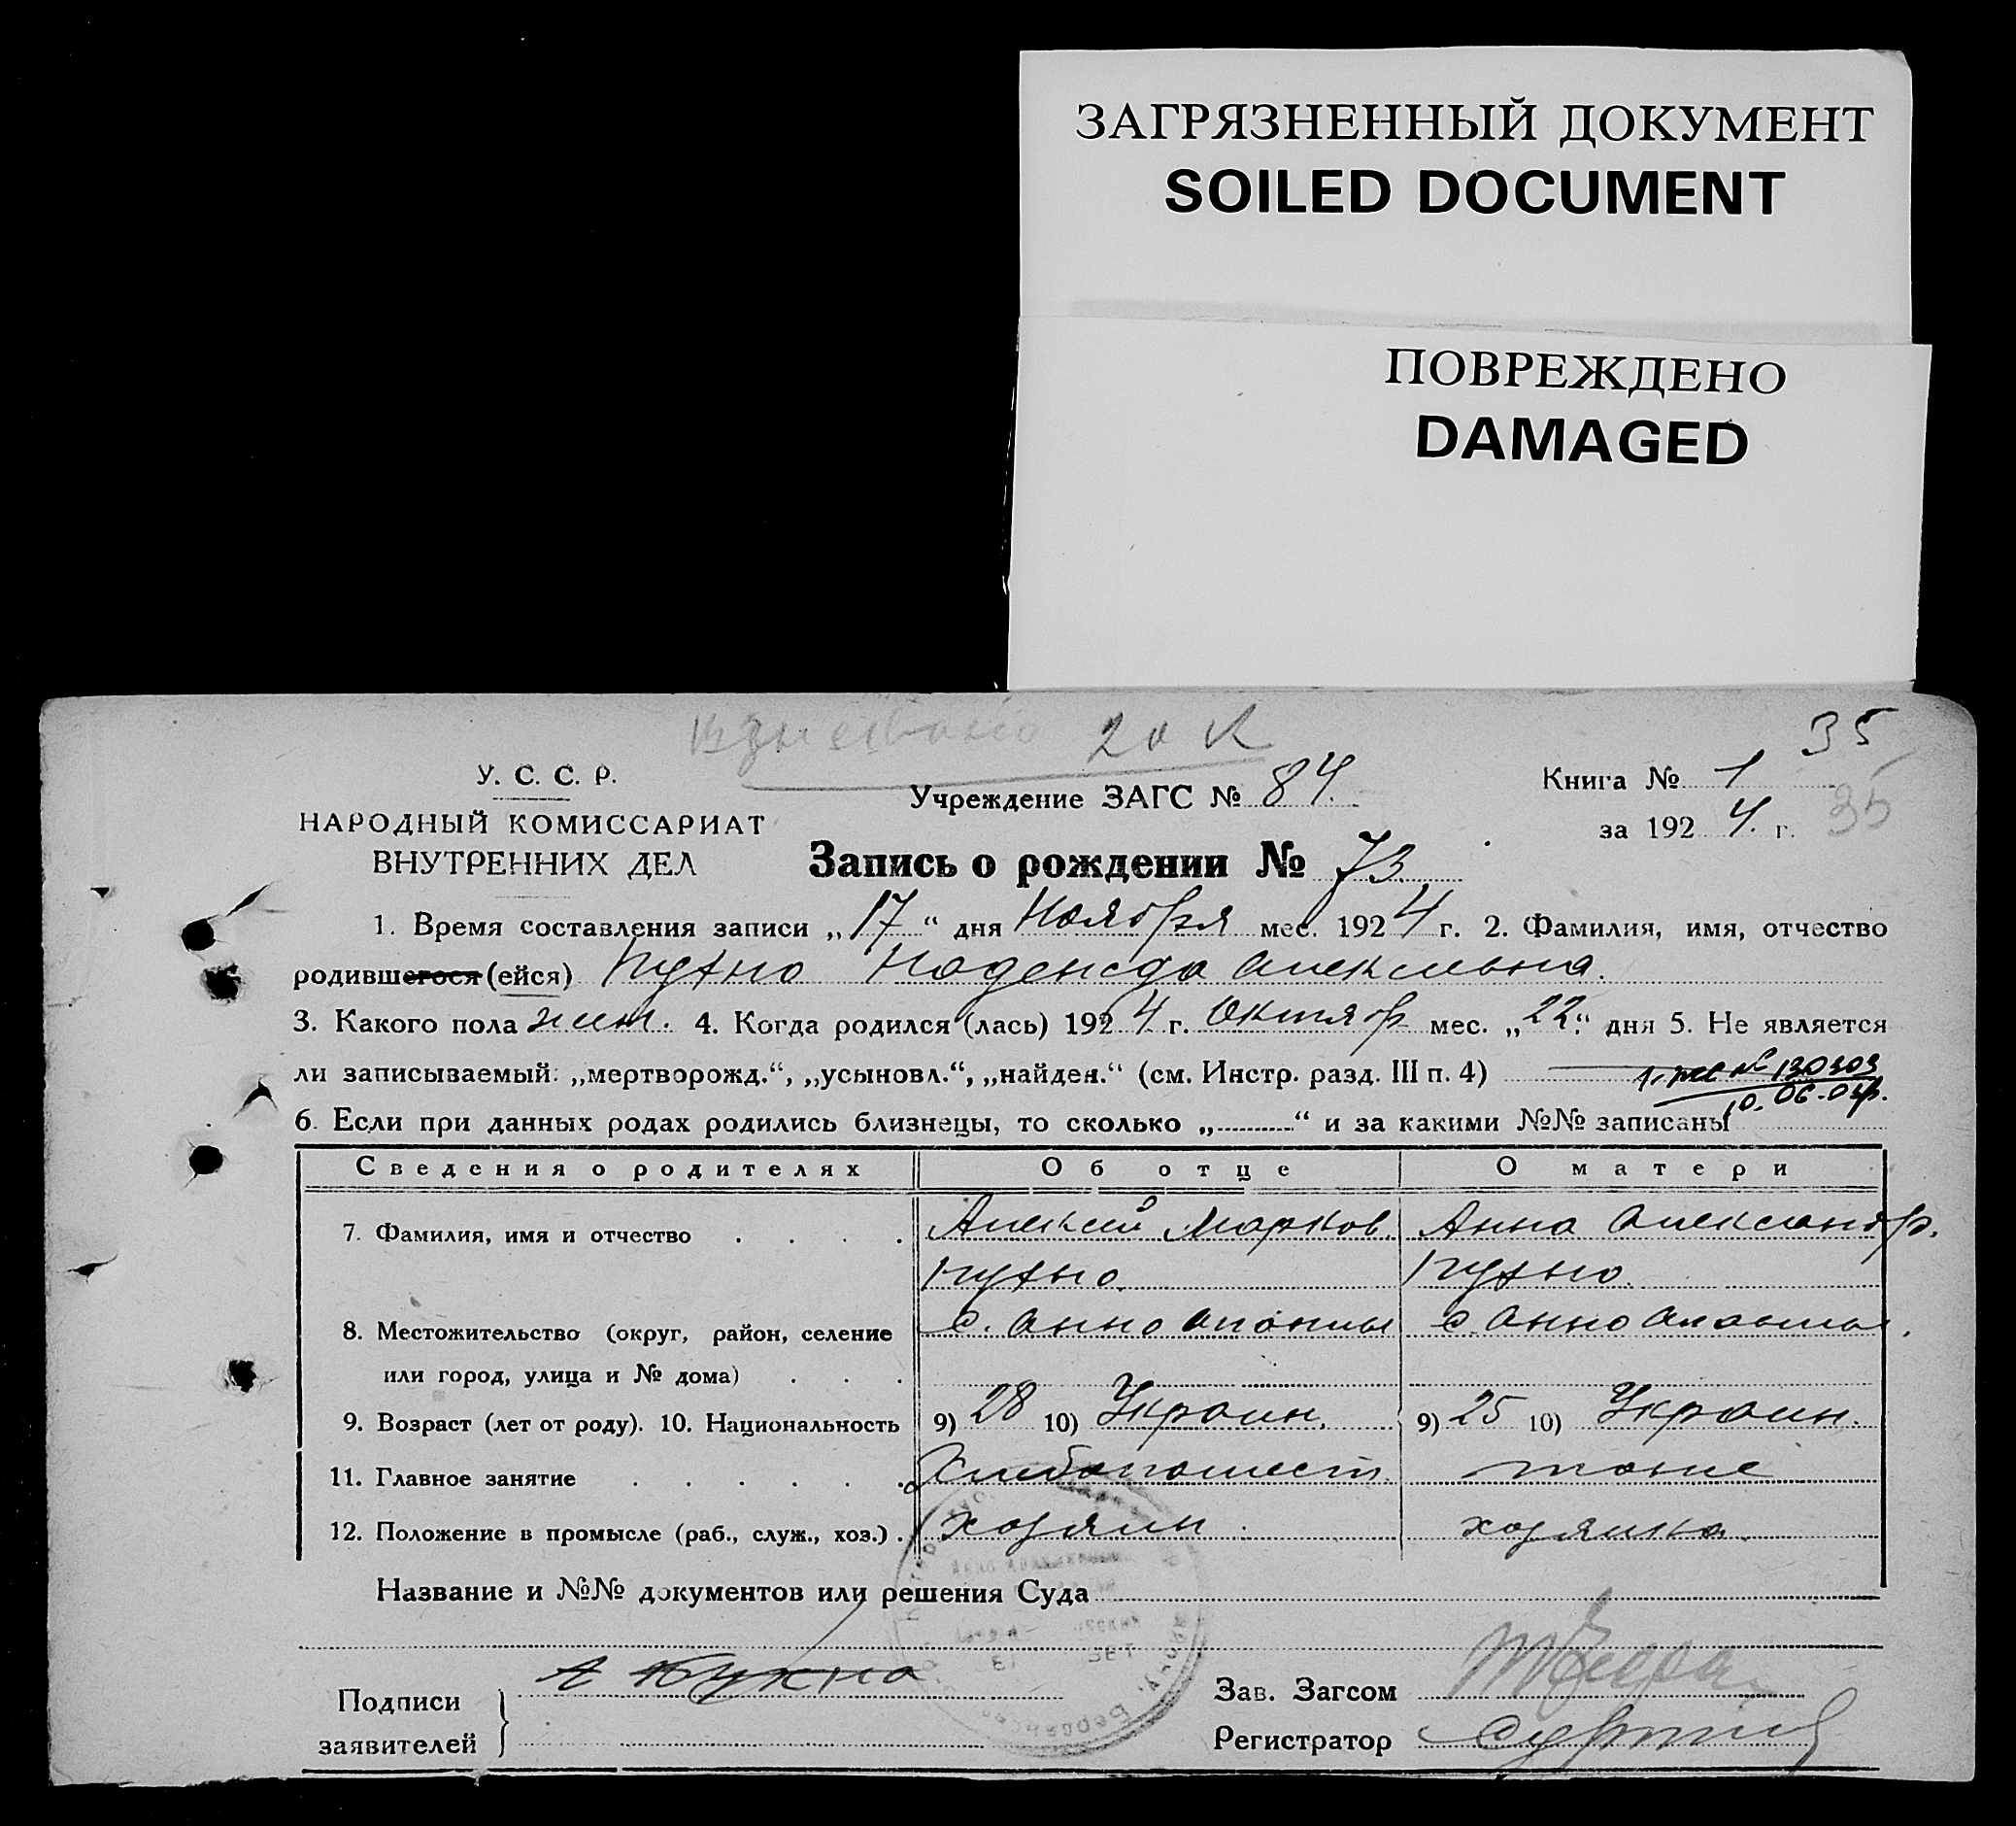 ЗАГРЯЗНЕННЫЙ ДОКУМЕНТ
SOILED DOCUMENT
ПОВРЕЖДЕНО
DAMAGED
20 к
35
У. С. С. Р.
НАРОДНЫЙ КОМИССАРИАТ
ВНУТРЕННИХ ДЕЛ
Учреждение ЗАГС № 84.
Книга № 1
за 1924. г. 35
Запись о рождении № 73.
1. Время составления записи „17“ дня Ноября мес. 1924 г. 2. Фамилия, имя, отчество
родившегося (ейся) Кухно Надежда Алексеевна.
3. Какого пола жен. 4. Когда родился (лась) 1924 г. Октябр мес. „22“ дня 5. Не является
ли записываемый: „мертворожд.“, „усыновл.“, „найден.“ (см. Инстр. разд. III п. 4) № 130303
6. Если при данных родах родились близнецы, то сколько „ “ и за какими №№ записаны
Сведения о родителях Об отце О матери
7. Фамилия, имя и отчество Алексей Марков. Анна Александр.
Кухно. Кухно.
8. Местожительство (округ, район, селение с. Анно с. Анно
или город, улица и № дома)
9. Возраст (лет от роду). 10. Национальность 9) 28 10) Украин. 9) 25 10) Украин.
11. Главное занятие Хлебопашест. тоже
12. Положение в промысле (раб., служ., хоз.) хозяин хозяйка
Название и №№ документов или решения Суда
Подписи
заявителей
А Кухно
Зав. Загсом
Регистратор